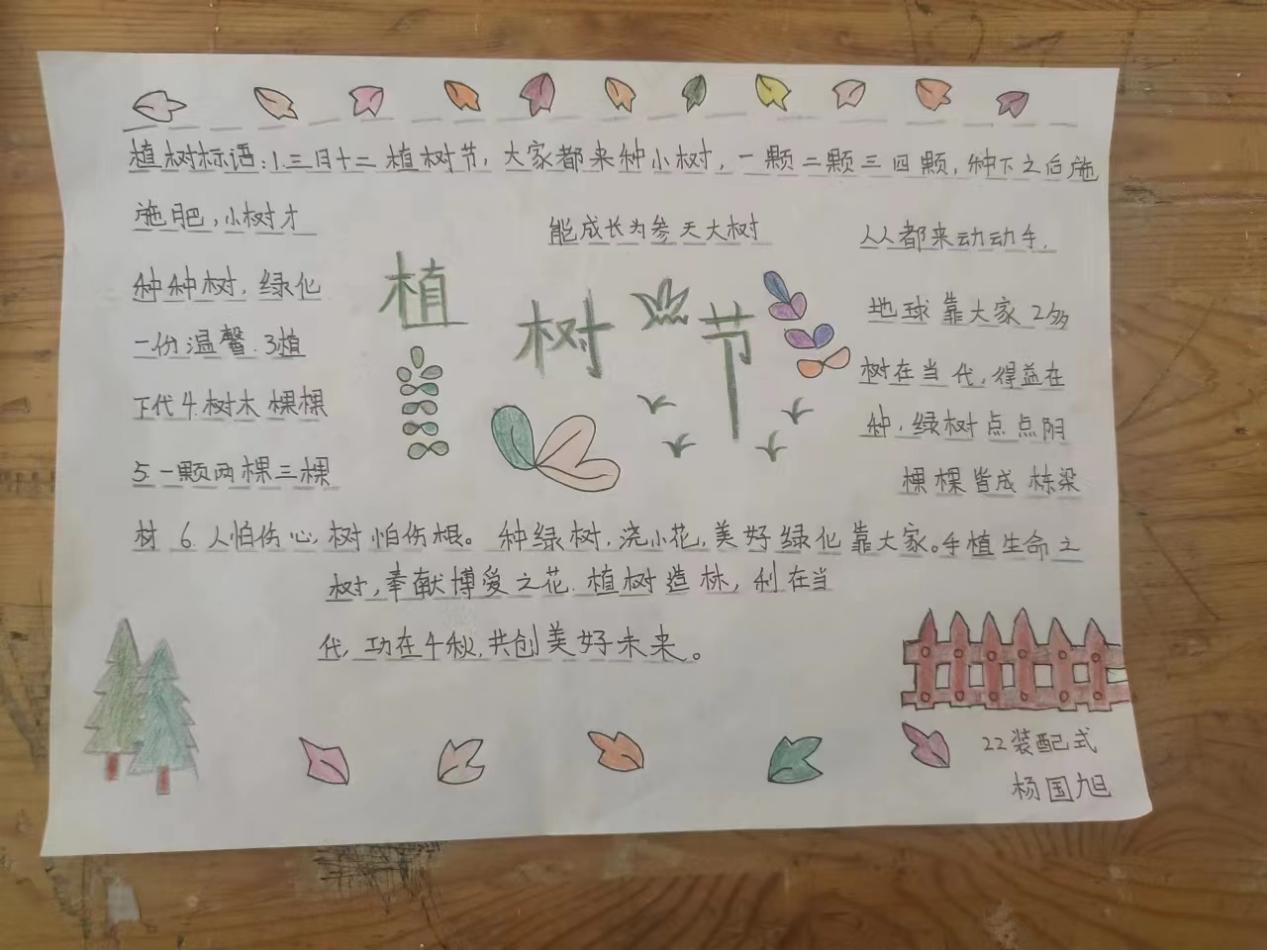 植树标语:1.三月十二植树节,大家都来种小树,一颗二颗三四颗,种下之后施
施肥,小树才
能成长为参天大树
人人都来动动手.
种种树,绿化
地球靠大家2多
一份温馨.3植
树在当代,得益在
下代4.树木棵棵
种,绿树点点阴
5.一颗两棵三棵
棵棵皆成栋梁
材 6.人怕伤心,树怕伤根。种绿树,浇小花,美好绿化靠大家。手植生命之
树,奉献博爱之花.植树造林,利在当
代,功在千秋,共创美好未来。
植
树
节
22装配式
杨国旭